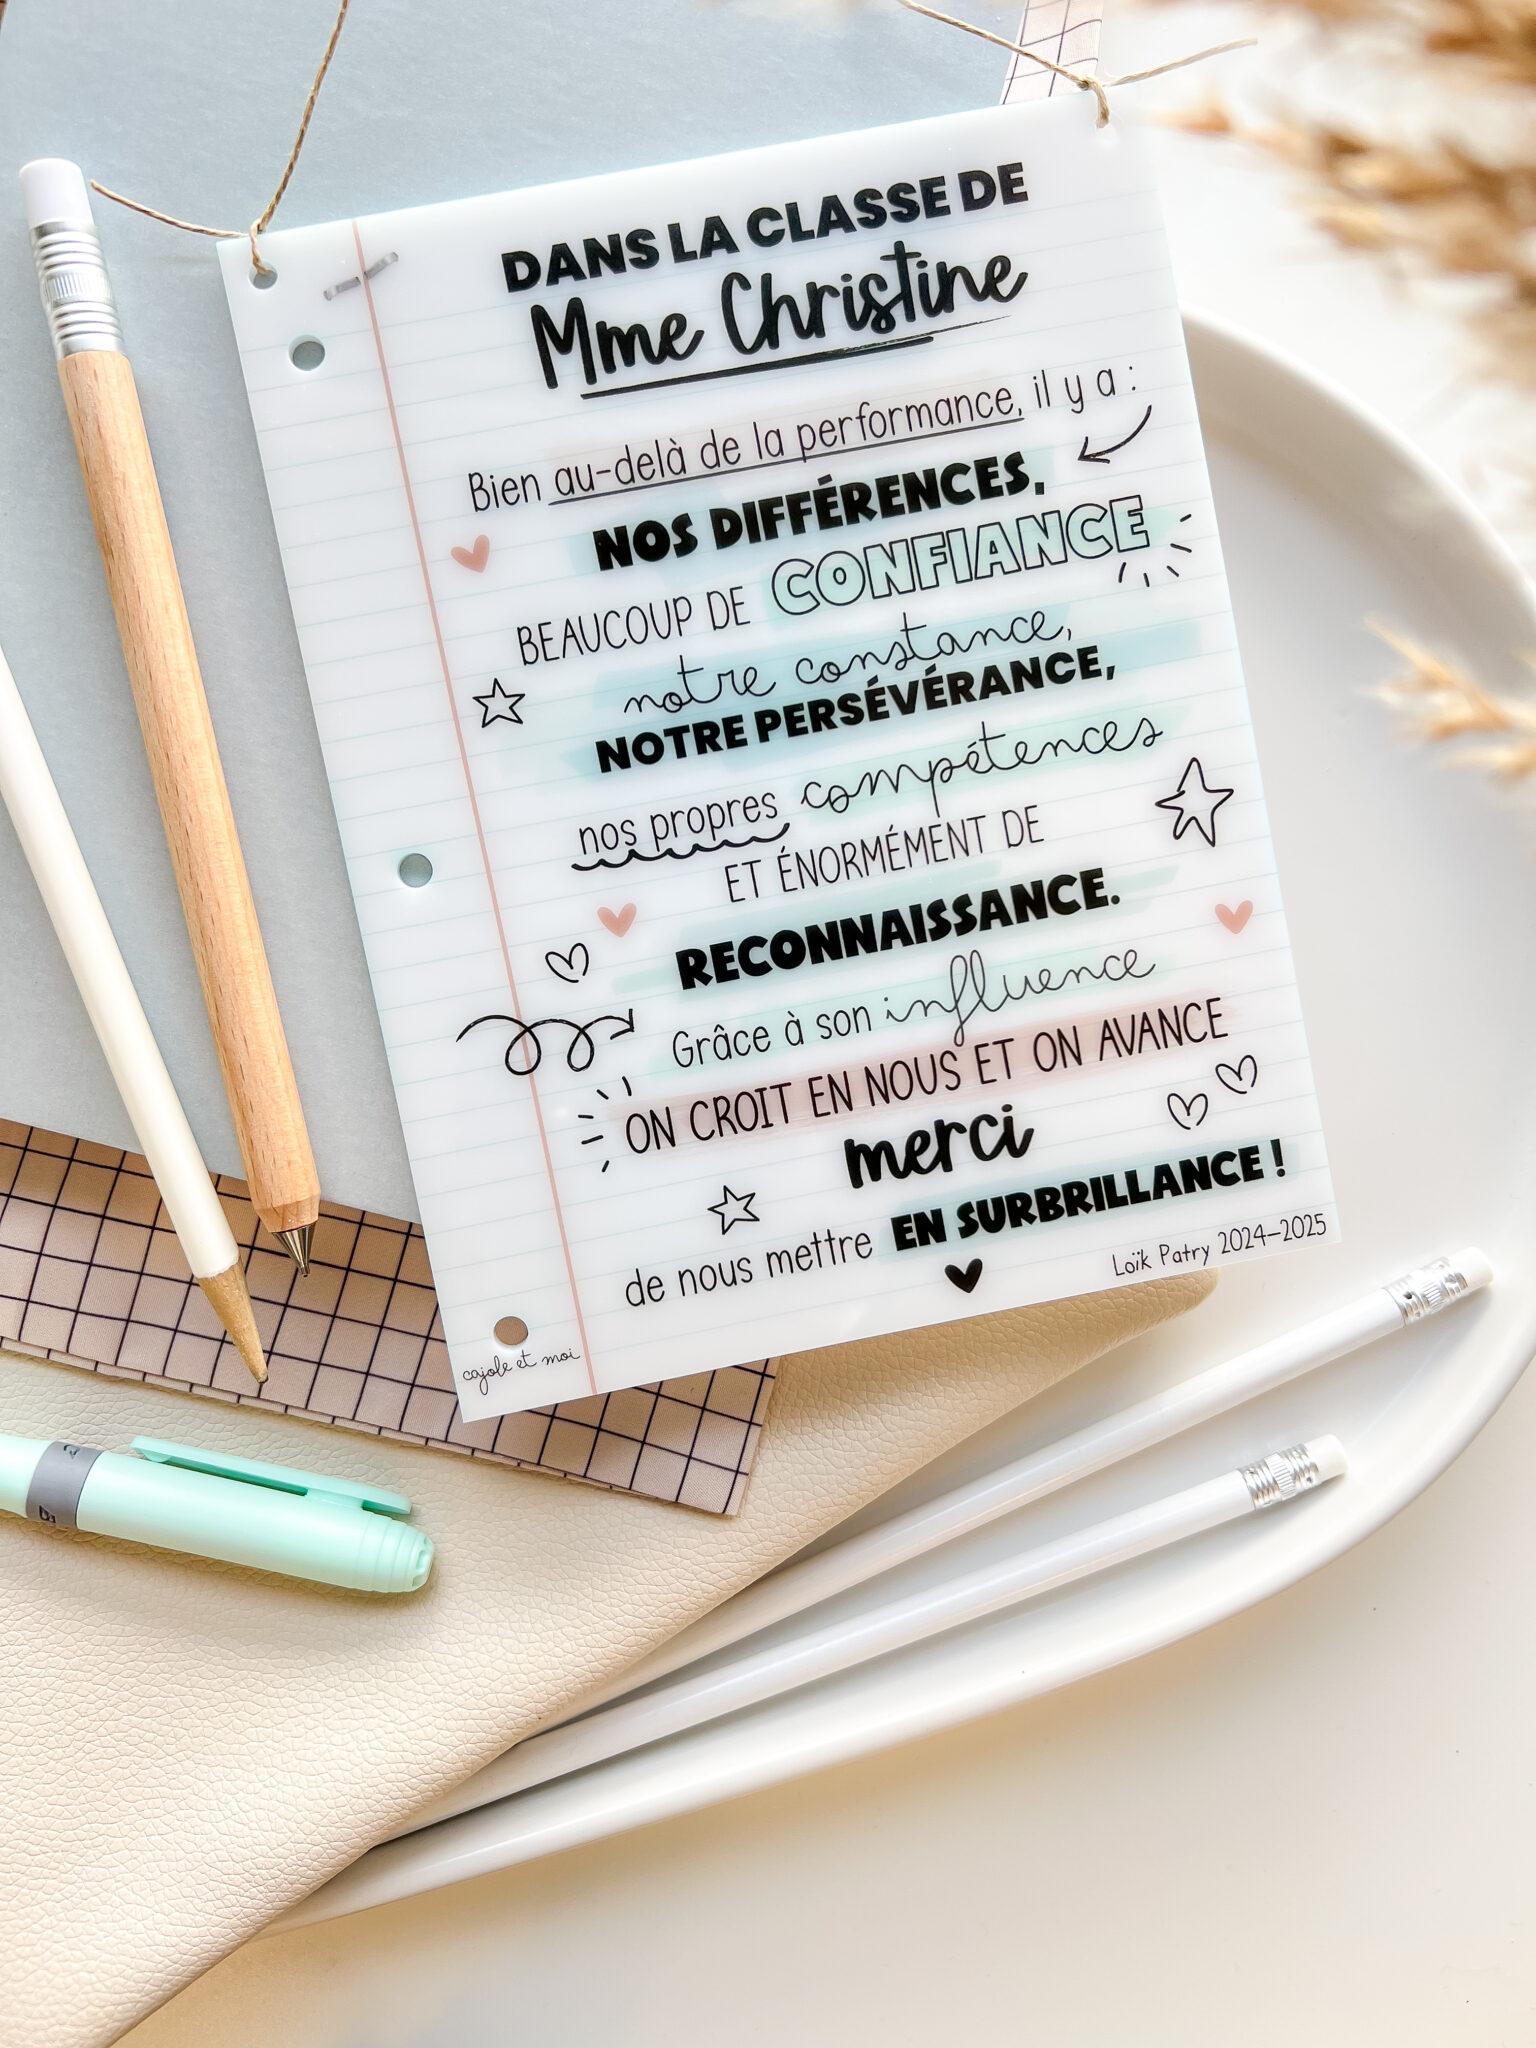 DANS LA CLASSE DE
Mme Christine
Bien au-delà de la performance, il y a :
NOS DIFFÉRENCES,
BEAUCOUP DE CONFIANCE
notre constance,
NOTRE PERSÉVÉRANCE,
nos propres compétences
ET ÉNORMÉMENT DE
RECONNAISSANCE.
Grâce à son influence
ON CROIT EN NOUS ET ON AVANCE
merci
de nous mettre EN SURBRILLANCE !
Loïk Patry 2024-2025
cajole et moi